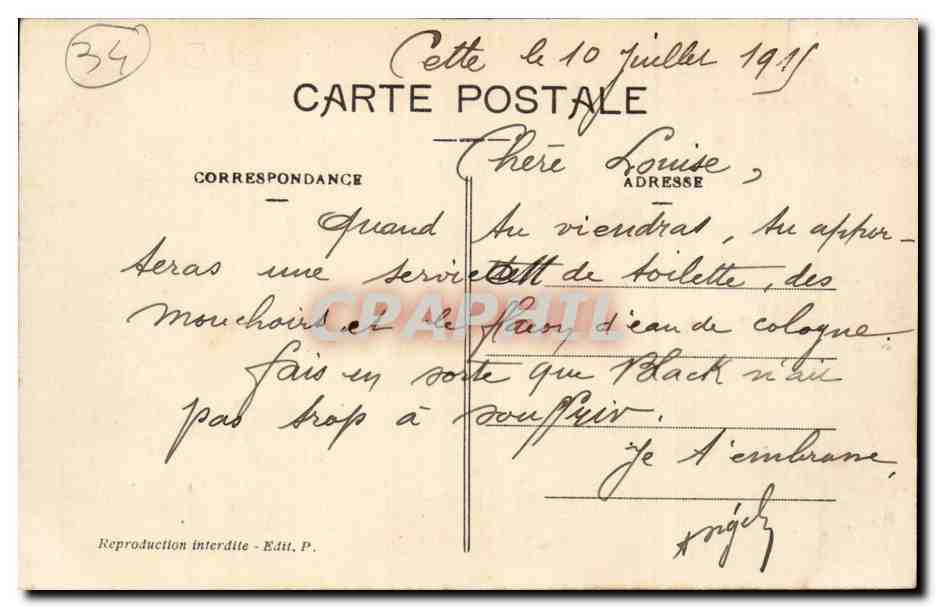 34
Cette le 10 Juillet 1915
CARTE POSTALE
Chère Louise,
CORRESPONDANCE
ADRESSE
Quand tu viendras, tu appor-
teras une serviette de toilette, des
mouchoirs et le flacon d'eau de cologne.
CPARAMA
fais en sorte que Black n'ait
pas trop à souffrir.
Je t'embrasse,
Angèle
Reproduction interdite - Edit. P.